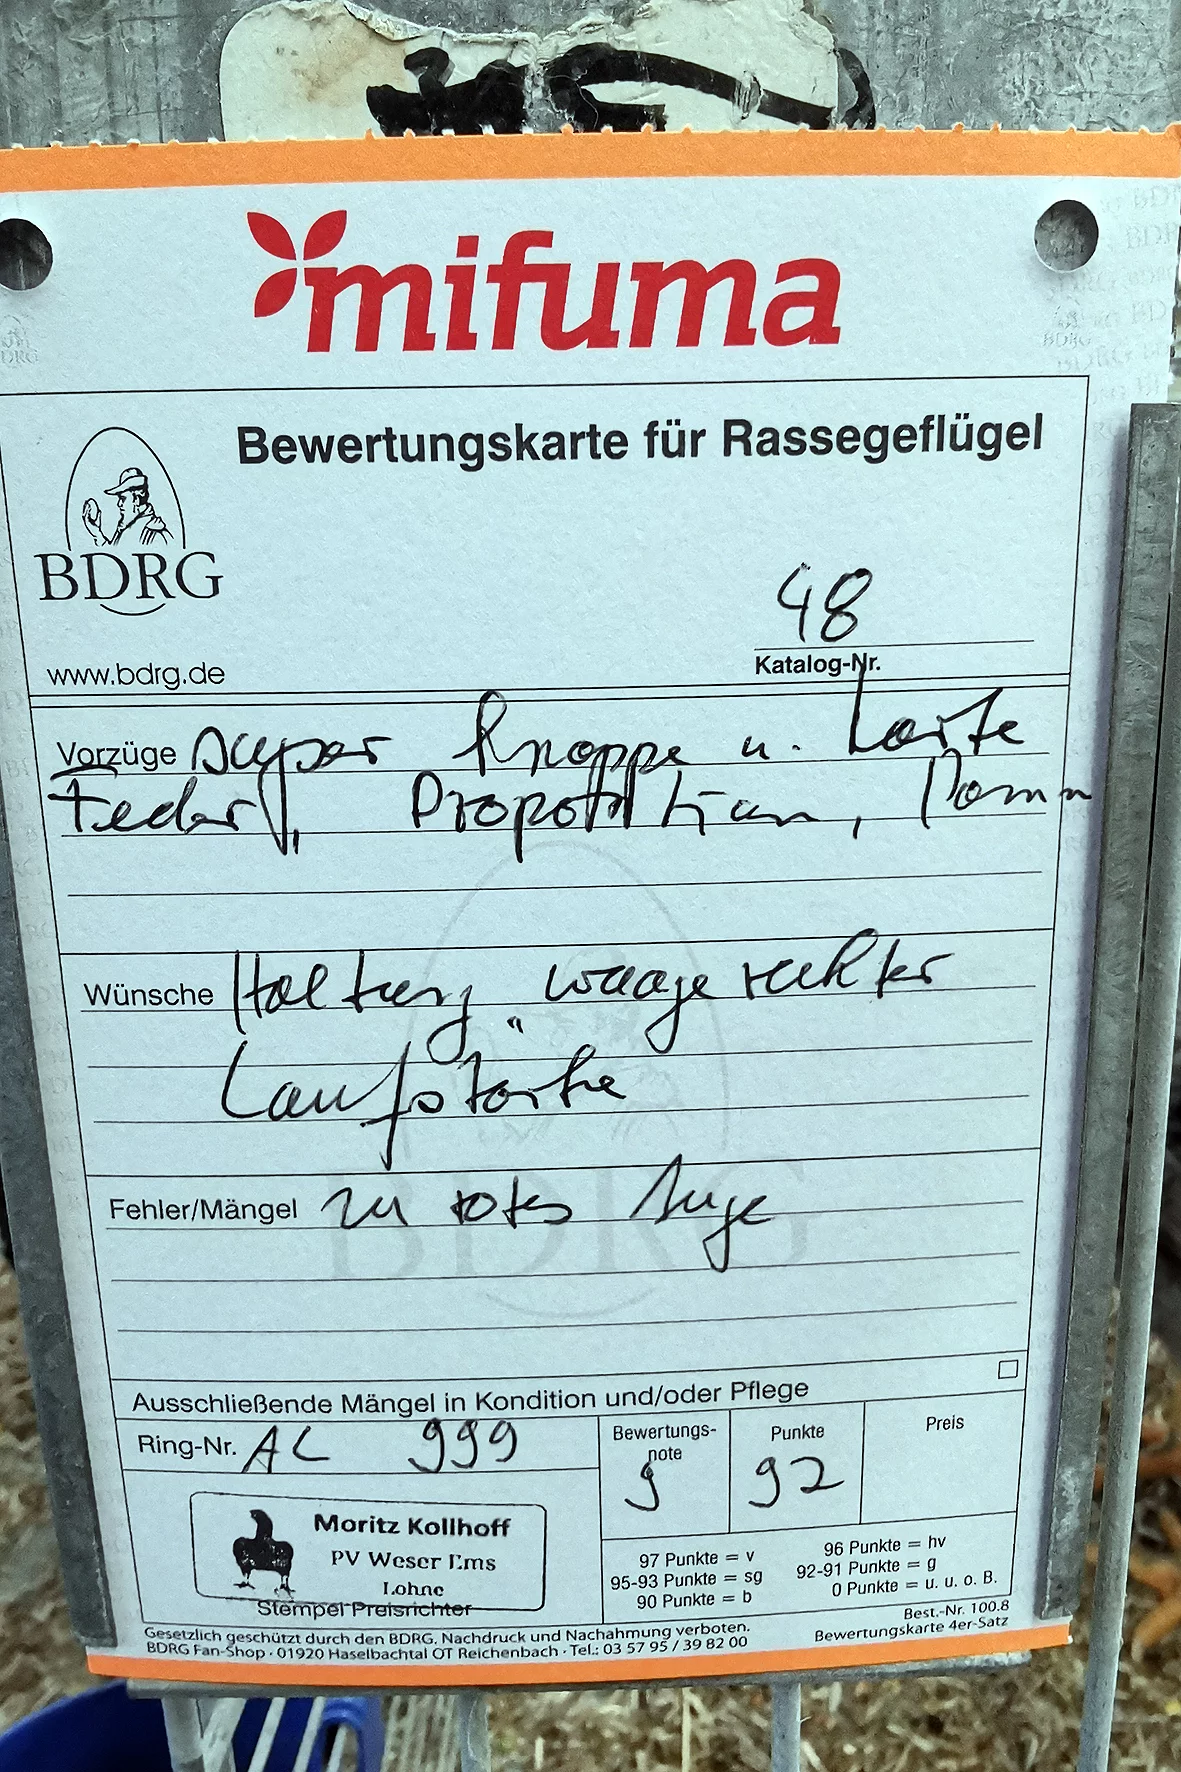 mifuma
Bewertungskarte für Rassegeflügel
BDRG
www.bdrg.de
48
Katalog-Nr.
Vorzüge super Knappe u. harte
Feder,
Wünsche Haltung waagerechter
Laufstärke
Fehler/Mängel zu rotes Auge
Ausschließende Mängel in Kondition und/oder Pflege
Ring-Nr. AC 999
Bewertungs-
note
g
Punkte
92
Preis
Moritz Kollhoff
PV Weser Ems
Lohne
Stempel Preisrichter
97 Punkte = v
96 Punkte = hv
95-93 Punkte = sg
92-91 Punkte = g
90 Punkte = b
0 Punkte = u. u. o. B.
Gesetzlich geschützt durch den BDRG. Nachdruck und Nachahmung verboten.
Best.-Nr. 100.8
BDRG Fan-Shop · 01920 Haselbachtal OT Reichenbach · Tel.: 03 57 95 / 39 82 00
Bewertungskarte 4er-Satz